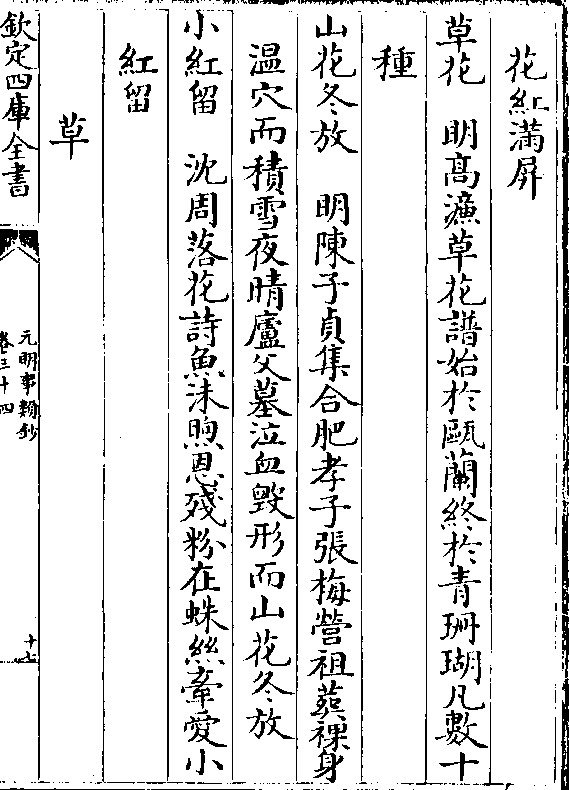 花紅滿屏
草花　明高濂草花譜始於甌蘭終於青珊瑚凡數十
種
山花冬放　明陳子貞集合肥孝子張梅營祖葬裸身
温穴而積雪夜晴廬父墓泣血毀形而山花冬放
小紅留　沈周落花詩魚沫煦恩殘粉在蛛絲牽愛小
紅留
草
欽定四庫全書
元明事類鈔
卷三十四
十七